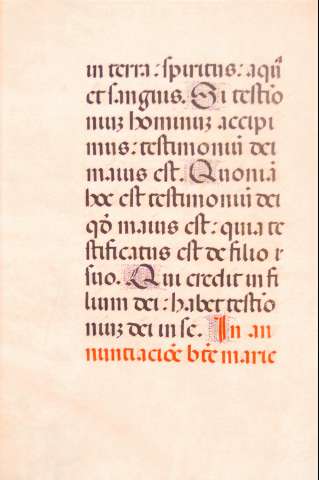 in terra : spiritus : aqua
et sanguis. Si testio
niuȝ hominuȝ accipi
mus : testimoniū dei
maius est. Quoniā
hec est testimoniū dei
qđ maius est : quia te
stificatus est de filio
suo. Qui credit in fi
lium dei : habet testio
niuȝ dei in se. In an
nunciacōe bte marie